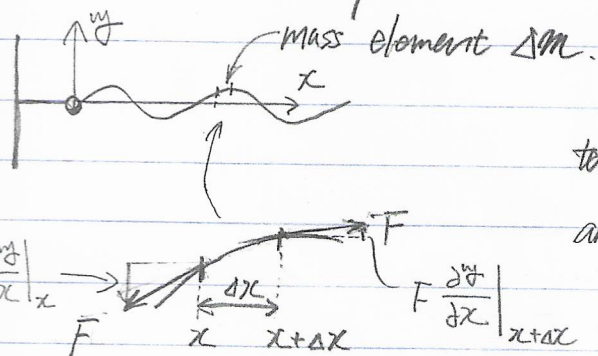 y
mass element Δm.
x
F
F ∂y/∂x|x+Δx
y/x|x
Δx
F
x x+Δx